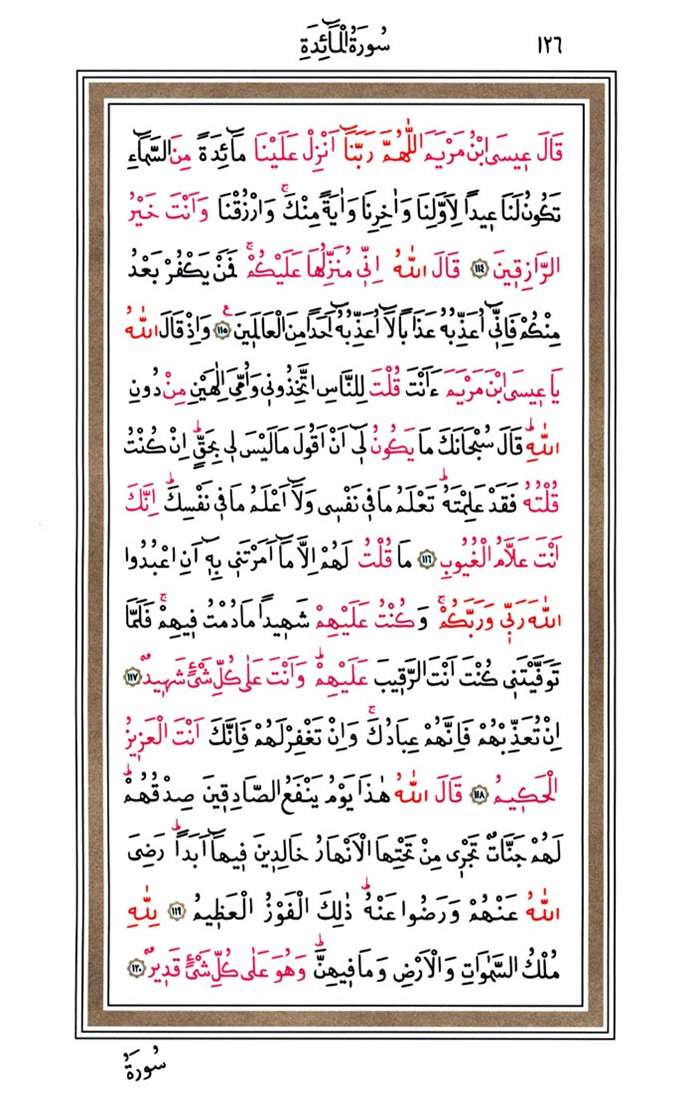 ١٢٦
سُورَةُ الْمَٓائِدَةِ
قَالَ ع۪يسَى ابْنُ مَرْيَمَ اللّٰهُمَّ رَبَّنَٓا اَنْزِلْ عَلَيْنَا مَٓائِدَةً مِنَ السَّمَٓاءِ
تَكُونُ لَنَا ع۪يداً لِاَوَّلِنَا وَاٰخِرِنَا وَاٰيَةً مِنْكَۚ وَارْزُقْنَا وَاَنْتَ خَيْرُ
الرَّازِق۪ينَ ﴿١١٤﴾ قَالَ اللّٰهُ اِنّ۪ي مُنَزِّلُهَا عَلَيْكُمْۚ فَمَنْ يَكْفُرْ بَعْدُ
مِنْكُمْ فَاِنّ۪ٓي اُعَذِّبُهُ عَذَاباً لَٓا اُعَذِّبُهُٓ اَحَداً مِنَ الْعَالَم۪ينَ۟ ﴿١١٥﴾ وَاِذْ قَالَ اللّٰهُ
يَا ع۪يسَى ابْنَ مَرْيَمَ ءَاَنْتَ قُلْتَ لِلنَّاسِ اتَّخِذُون۪ي وَاُمِّيَ اِلٰهَيْنِ مِنْ دُونِ
اللّٰهِۜ قَالَ سُبْحَانَكَ مَا يَكُونُ ل۪ٓي اَنْ اَقُولَ مَا لَيْسَ ل۪ي بِحَقٍّۜ اِنْ كُنْتُ
قُلْتُهُ فَقَدْ عَلِمْتَهُۜ تَعْلَمُ مَا ف۪ي نَفْس۪ي وَلَٓا اَعْلَمُ مَا ف۪ي نَفْسِكَۜ اِنَّكَ
اَنْتَ عَلَّامُ الْغُيُوبِ ﴿١١٦﴾ مَا قُلْتُ لَهُمْ اِلَّا مَٓا اَمَرْتَن۪ي بِه۪ٓ اَنِ اعْبُدُوا
اللّٰهَ رَبّ۪ي وَرَبَّكُمْۚ وَكُنْتُ عَلَيْهِمْ شَه۪يداً مَا دُمْتُ ف۪يهِمْۚ فَلَمَّا
تَوَفَّيْتَن۪ي كُنْتَ اَنْتَ الرَّق۪يبَ عَلَيْهِمْۜ وَاَنْتَ عَلٰى كُلِّ شَيْءٍ شَه۪يدٌ ﴿١١٧﴾
اِنْ تُعَذِّبْهُمْ فَاِنَّهُمْ عِبَادُكَۚ وَاِنْ تَغْفِرْ لَهُمْ فَاِنَّكَ اَنْتَ الْعَز۪يزُ
الْحَك۪يمُ ﴿١١٨﴾ قَالَ اللّٰهُ هٰذَا يَوْمُ يَنْفَعُ الصَّادِق۪ينَ صِدْقُهُمْۜ
لَهُمْ جَنَّاتٌ تَجْر۪ي مِنْ تَحْتِهَا الْاَنْهَارُ خَالِد۪ينَ ف۪يهَٓا اَبَداًۜ رَضِيَ
اللّٰهُ عَنْهُمْ وَرَضُوا عَنْهُۜ ذٰلِكَ الْفَوْزُ الْعَظ۪يمُ ﴿١١٩﴾ لِلّٰهِ
مُلْكُ السَّمٰوَاتِ وَالْاَرْضِ وَمَا ف۪يهِنَّۜ وَهُوَ عَلٰى كُلِّ شَيْءٍ قَد۪يرٌ ﴿١٢٠﴾
سُورَةُ